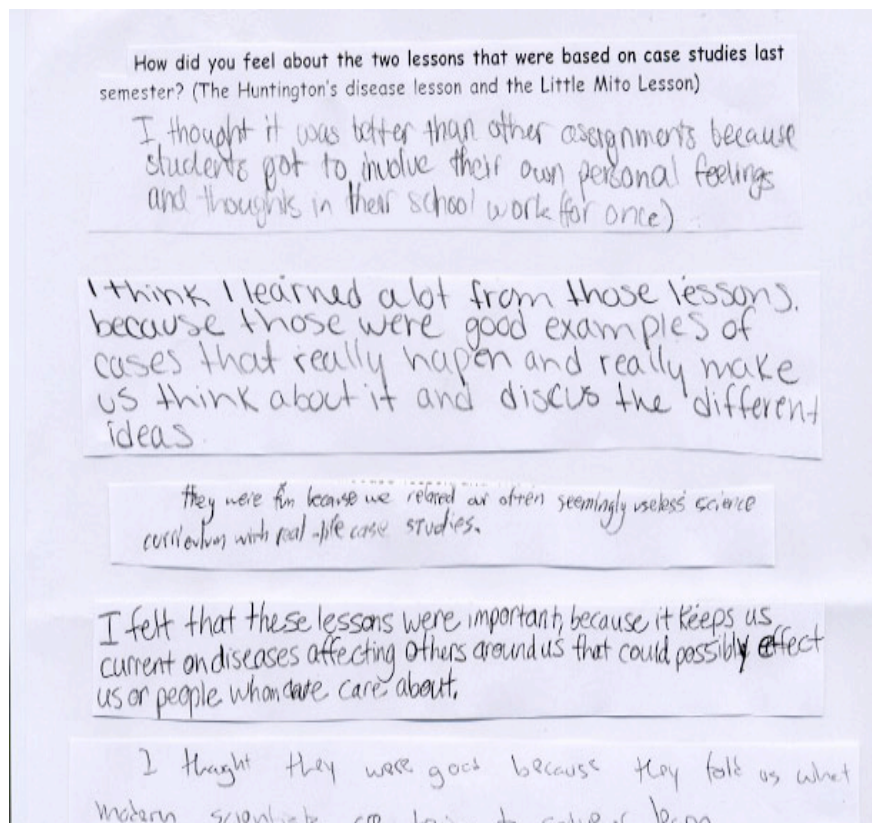 How did you feel about the two lessons that were based on case studies last
semester? (The Huntington's disease lesson and the Little Mito Lesson)
I thought it was better than other assignments because
students got to involve their own personal feelings
and thoughts in their school work (for once)
I think I learned a lot from those lessons.
because those were good examples of
cases that really hapen and really make
us think about it and discus the different
ideas.
they were fun because we related our often seemingly useless science
curriculum with real-life case studies.
I felt that these lessons were important, because it keeps us
current on diseases affecting others around us that could possibly effect
us or people whom we care about.
I thaght they were good because they told us what
modern scientists